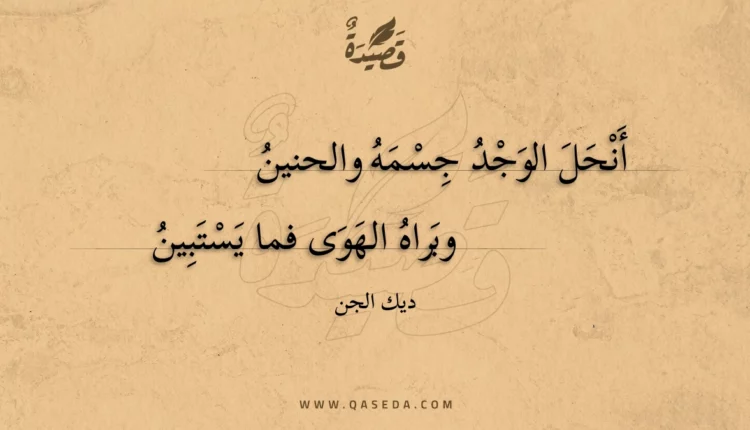 قَصِيْدَةٌ
أَنْحَلَ الوَجْدُ جِسْمَهُ والحنينُ
وبَراهُ الهَوَى فما يَسْتَبِينُ
ديك الجن
WWW.QASEDA.COM